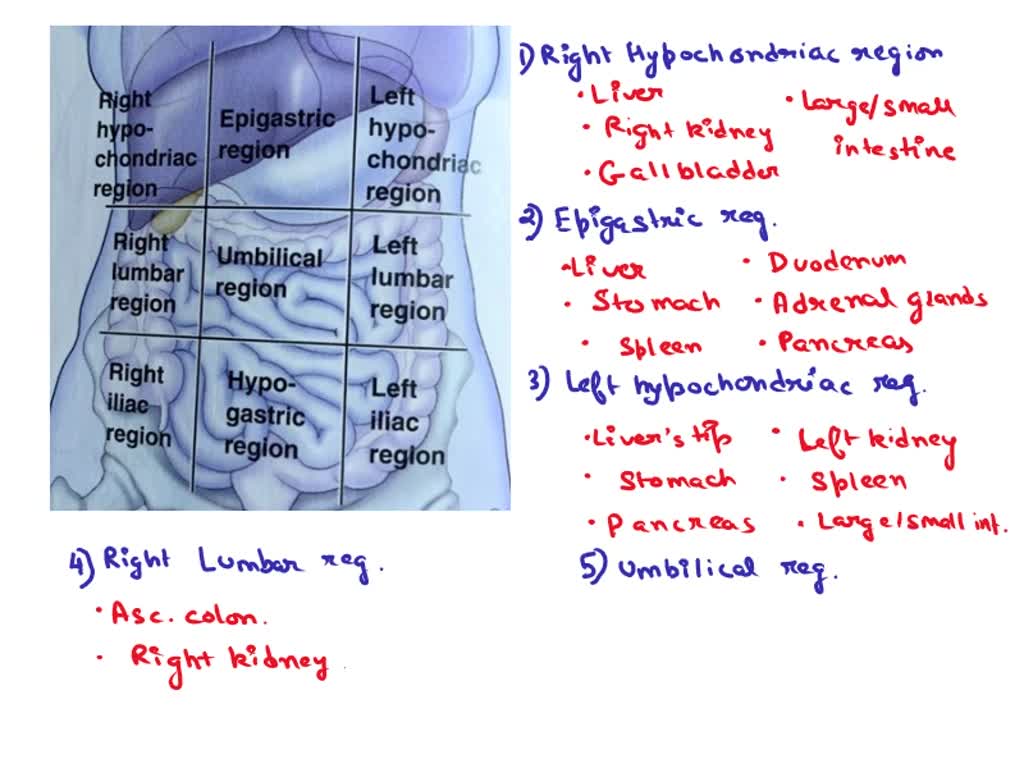 Right
hypo-
chondriac
region
Epigastric
region
Left
hypo-
chondriac
region
Right
lumbar
region
Umbilical
region
Left
lumbar
region
Right
iliac
region
Hypo-
gastric
region
Left
iliac
region
1) Right Hypochondriac region
• Liver
• Right kidney
• Gallbladder
• Large/small
intestine
2) Epigastric reg.
• Liver
• Stomach
• Spleen
• Duodenum
• Adrenal glands
• Pancreas
3) Left hypochondriac reg.
• Liver's tip
• Stomach
• Pancreas
• Left kidney
• Spleen
• Large/small int.
4) Right Lumbar reg.
• Asc. colon.
• Right kidney
5) Umbilical reg.